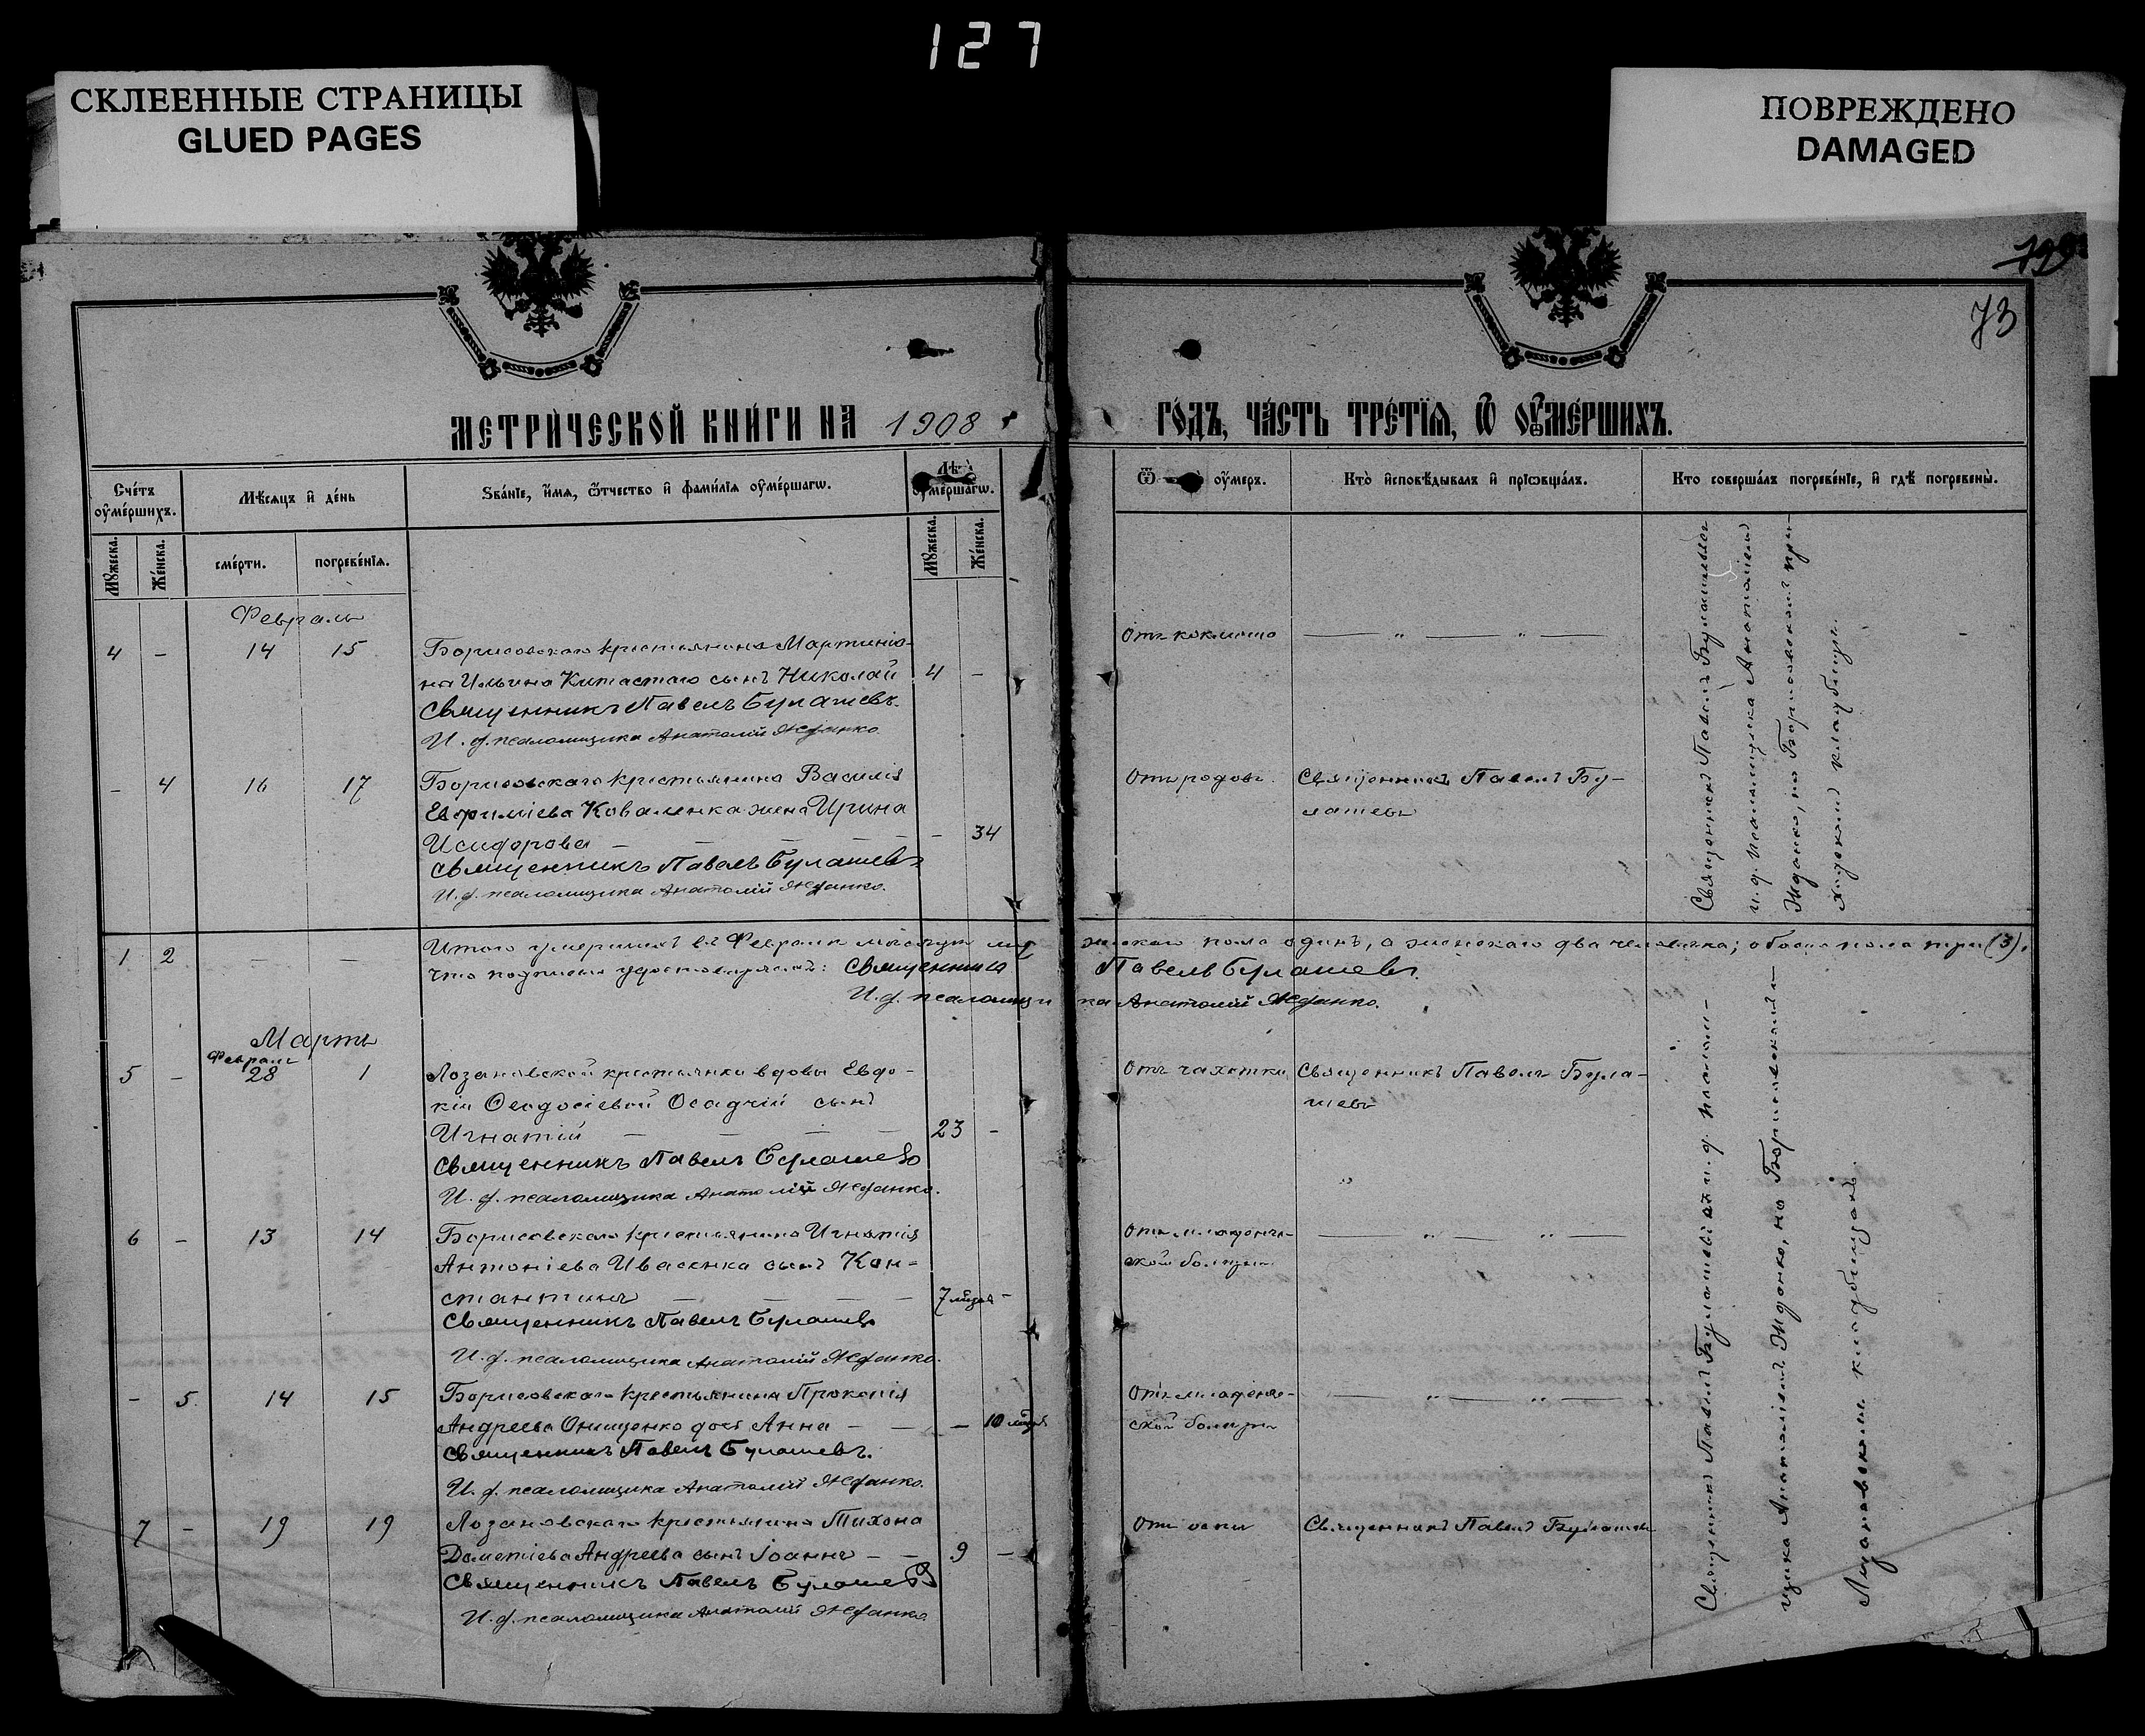 127
СКЛЕЕННЫЕ СТРАНИЦЫ
GLUED PAGES
ПОВРЕЖДЕНО
DAMAGED
199
73
МЕТРИ́ЧЕСКОЙ КНИ́ГИ НА 1908
ГО́ДЪ, ЧА́СТЬ ТРЕ́ТЇѦ, Ѿ ОУМЕ́РШИХЪ.
Счетъ оумершихъ.
Мѣсяцъ и день
Званіе, имя, отчество и фамилія оумершагѡ.
Лѣ оумершагѡ.
Ѿ оумеръ.
Кто исповѣдывалъ и прїѡбщалъ.
Кто совершалъ погребеніе, и гдѣ погребены.
Мужеска.
Женска.
смерти.
погребенія.
Мужеска.
Женска.
Февраль
4 - 14 15 Борисовскаго крестьянина Мартиніа- Отъ коклюша — " — " —
на Ильина Китастаго сынъ Николай 4 -
Священникъ Павелъ Булашевъ.
И. д. псаломщика Анатолій Жданко.
- 4 16 17 Борисовскаго крестьянина Василія Отъ родовъ Священникъ Павелъ Бу-
Евфиміева Коваленка жена Ирина лашевъ
Исидорова — — — — - 34
Священникъ Павелъ Булашевъ
И. д. псаломщика Анатолій Жданко.
Священникъ Павелъ Булашевъ
и. д. псаломщика Анатолій
Жданко, на Борисовскомъ при-
ходскомъ кладбищѣ.
1 2 — — Итого умершихъ въ Февралѣ мѣсяцѣ мужескаго пола одинъ, а женскаго два человѣка; обоего пола три (3).
Что подписью удостовѣряемъ: Священникъ Павелъ Булашевъ.
И. д. псаломщика Анатолій Жданко.
Мартъ
Февраля
5 - 28 1 Лозановской крестьянки вдовы Евдо- Отъ чахотки Священникъ Павелъ Була-
кіи Ѳеодосіевой Осадчій сынъ шевъ
Игнатій — — — — 23 -
Священникъ Павелъ Булашевъ
И. д. псаломщика Анатолій Жданко.
6 - 13 14 Борисовскаго крестьянина Игнатія Отъ младенче- — " — " —
Антоніева Ивасенка сынъ Кон- ской болѣзни
стантинъ — — — — 7 мѣсяц. -
Священникъ Павелъ Булашевъ
И. д. псаломщика Анатолій Жданко.
- 5 14 15 Борисовскаго крестьянина Прокопія Отъ младенче- — " — " —
Андреева Онищенко дочь Анна — — - 10 мѣсяц. ской болѣзни
Священникъ Павелъ Булашевъ.
И. д. псаломщика Анатолій Жданко.
7 - 19 19 Лозановскаго крестьянина Тихона Отъ оспы Священникъ Павелъ Булашевъ
Дометіева Андреева сынъ Іоаннъ — — 9 -
Священникъ Павелъ Булашевъ
И. д. псаломщика Анатолій Жданко
Священникъ Павелъ Булашевъ и и. д. псалом-
щика Анатолій Жданко, на Борисовскомъ и
Лозановскомъ кладбищахъ.